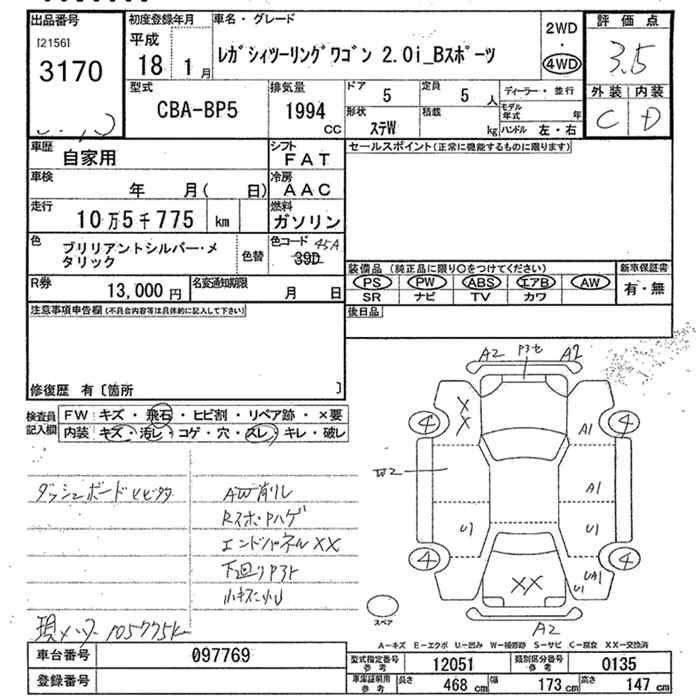 出品番号
[2156]
3170
初度登録年月
平成
18 1月
車名・グレード
レガシィツーリングワゴン 2.0i_Bスポーツ
2WD
・
4WD
評価点
3.5
外装 内装
C D
型式
CBA-BP5
排気量
1994
CC
ドア
5
定員
5 人
形状
ステW
積載
kg
ディーラー・並行
モデル年式 年
ハンドル 左・右
車歴
自家用
シフト
FAT
セールスポイント(正常に機能するものに限ります)
車検
年 月( 日)
冷房
AAC
走行
10万5千775 km
燃料
ガソリン
色
ブリリアントシルバー・メタリック
色替
色コード 45A
39D
R券
13,000円
名変通知期限
月 日
装備品(純正品に限り○をつけてください)
PS PW ABS エアB AW
SR ナビ TV カワ
新車保証書
有・無
後日品
注意事項申告欄(不具合内容等は具体的に記入して下さい)
修復歴 有〔箇所 〕
検査員記入欄
FW キズ・飛石・ヒビ割・リペア跡・×要
内装 キズ・汚レ・コゲ・穴・スレ・キレ・破レ
ダッシュボードヒビワレ
AW削レ
RスポPハゲ
エンドパネルXX
下回りPサビ
小キズ凹U
現メーター 105775k
A2 Pスセ A2
X
X
4 4
A1
W2
A1
U1 U1
4 4
UA1
U1
XX
A2
スペア
A-キズ E-エクボ U-凹み W-補修跡 S-サビ C-腐食 XX-交換済
車台番号
097769
登録番号
型式指定番号
参考
12051
類別区分番号
参考
0135
車庫証明用
参考
長さ 468 cm 幅 173 cm 高さ 147 cm